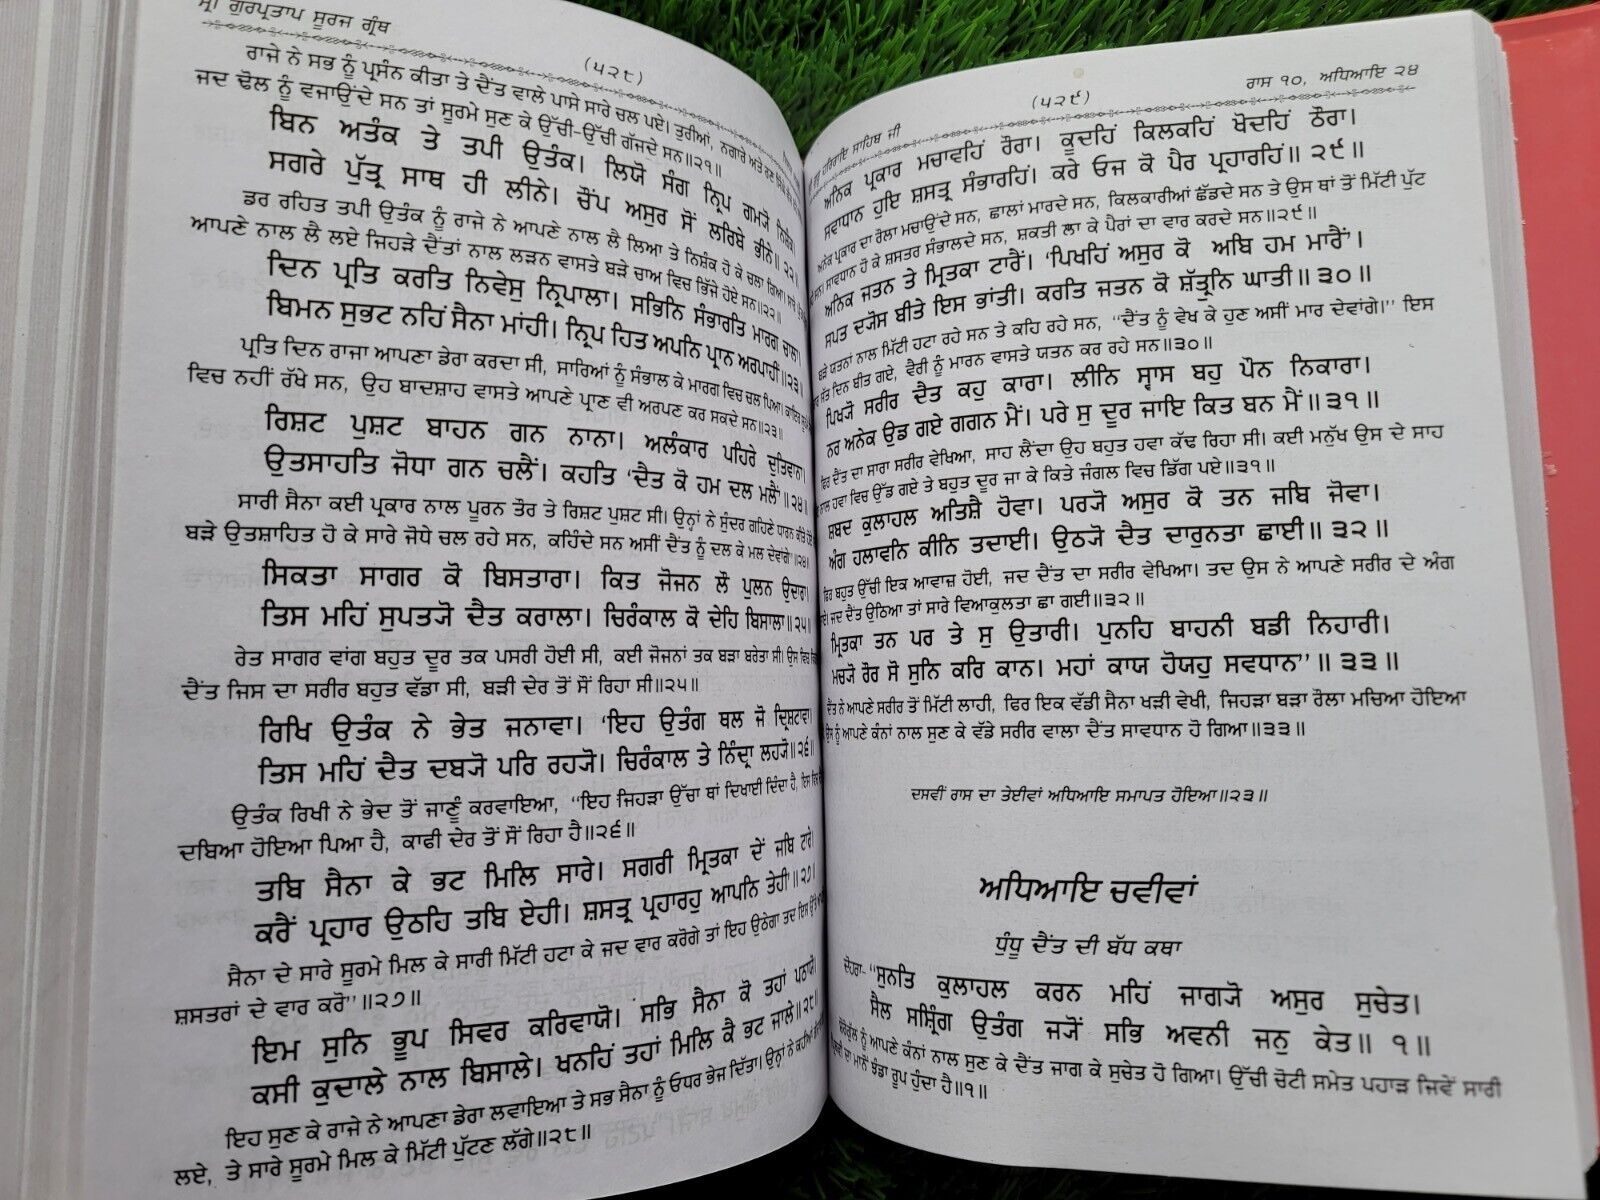 ਸ੍ਰੀ ਗੁਰਪ੍ਰਤਾਪ ਸੂਰਜ ਗ੍ਰੰਥ
(੫੨੮)
ਰਾਜੇ ਨੇ ਸਭ ਨੂੰ ਪ੍ਰਸੰਨ ਕੀਤਾ ਤੇ ਦੈਂਤ ਵਾਲੇ ਪਾਸੇ ਸਾਰੇ ਚਲ ਪਏ। ਤੁਰੀਆਂ, ਨਗਾਰੇ ਅਤੇ
ਜਦ ਢੋਲ ਨੂੰ ਵਜਾਉਂਦੇ ਸਨ ਤਾਂ ਸੂਰਮੇ ਸੁਣ ਕੇ ਉੱਚੀ-ਉੱਚੀ ਗੱਜਦੇ ਸਨ॥੨੧॥
ਬਿਨ ਅਤੰਕ ਤੇ ਤਪੀ ਉਤੰਕ। ਲਿਯੋ ਸੰਗ ਨ੍ਰਿਪ ਗਮਨ੍ਯੋ
ਸਗਰੇ ਪੁੱਤ੍ਰ ਸਾਥ ਹੀ ਲੀਨੇ। ਚੌਂਪ ਅਸੁਰ ਸੋਂ ਲਰਿਬੇ ਭੀਨੇ॥੨੨॥
ਡਰ ਰਹਿਤ ਤਪੀ ਉਤੰਕ ਨੂੰ ਰਾਜੇ ਨੇ ਆਪਣੇ ਨਾਲ ਲੈ ਲਿਆ ਤੇ ਨਿਸ਼ੰਕ ਹੋ ਕੇ ਚਲਾ ਗਿਆ। ਸਾਰੇ
ਆਪਣੇ ਨਾਲ ਲੈ ਲਏ ਜਿਹੜੇ ਦੈਂਤਾਂ ਨਾਲ ਲੜਨ ਵਾਸਤੇ ਬੜੇ ਚਾਅ ਵਿਚ ਭਿੱਜੇ ਹੋਏ ਸਨ॥੨੨॥
ਦਿਨ ਪ੍ਰਤਿ ਕਰਤਿ ਨਿਵੇਸੁ ਨ੍ਰਿਪਾਲਾ। ਸਭਿਨਿ ਸੰਭਾਰਤਿ ਮਾਰਗ ਚਾਲਾ।
ਬਿਮਨ ਸੁਭਟ ਨਹਿਂ ਸੈਨਾ ਮਾਂਹੀ। ਨ੍ਰਿਪ ਹਿਤ ਅਪਨਿ ਪ੍ਰਾਨ ਅਰਪਾਹੀਂ॥੨੩॥
ਪ੍ਰਤਿ ਦਿਨ ਰਾਜਾ ਆਪਣਾ ਡੇਰਾ ਕਰਦਾ ਸੀ, ਸਾਰਿਆਂ ਨੂੰ ਸੰਭਾਲ ਕੇ ਮਾਰਗ ਵਿਚ ਚਲ ਪਿਆ। ਕਾਇਰ
ਵਿਚ ਨਹੀਂ ਰੱਖੇ ਸਨ, ਉਹ ਬਾਦਸ਼ਾਹ ਵਾਸਤੇ ਆਪਣੇ ਪ੍ਰਾਣ ਵੀ ਅਰਪਣ ਕਰ ਸਕਦੇ ਸਨ॥੨੩॥
ਰਿਸ਼ਟ ਪੁਸ਼ਟ ਬਾਹਨ ਗਨ ਨਾਨਾ। ਅਲੰਕਾਰ ਪਹਿਰੇ ਦੁਤਿਵਾਨਾ।
ਉਤਸਾਹਤਿ ਜੋਧਾ ਗਨ ਚਲੈਂ। ਕਹਤਿ ‘ਦੈਤ ਕੋ ਹਮ ਦਲ ਮਲੈਂ’॥੨੪॥
ਸਾਰੀ ਸੈਨਾ ਕਈ ਪ੍ਰਕਾਰ ਨਾਲ ਪੂਰਨ ਤੌਰ ਤੇ ਰਿਸ਼ਟ ਪੁਸ਼ਟ ਸੀ। ਉਨ੍ਹਾਂ ਨੇ ਸੁੰਦਰ ਗਹਿਣੇ ਧਾਰਨ ਕੀਤੇ
ਬੜੇ ਉਤਸ਼ਾਹਿਤ ਹੋ ਕੇ ਸਾਰੇ ਜੋਧੇ ਚਲ ਰਹੇ ਸਨ, ਕਹਿੰਦੇ ਸਨ ਅਸੀਂ ਦੈਂਤ ਨੂੰ ਦਲ ਕੇ ਮਲ ਦੇਵਾਂਗੇ॥੨੪॥
ਸਿਕਤਾ ਸਾਗਰ ਕੋ ਬਿਸਤਾਰਾ। ਕਿਤ ਜੋਜਨ ਲੌ ਪੁਲਨ ਉਦਾਰਾ।
ਤਿਸ ਮਹਿਂ ਸੁਪਤ੍ਯੋ ਦੈਤ ਕਰਾਲਾ। ਚਿਰੰਕਾਲ ਕੋ ਦੇਹਿ ਬਿਸਾਲਾ॥੨੫॥
ਰੇਤ ਸਾਗਰ ਵਾਂਗ ਬਹੁਤ ਦੂਰ ਤਕ ਪਸਰੀ ਹੋਈ ਸੀ, ਕਈ ਜੋਜਨਾਂ ਤਕ ਬੜਾ ਬਰੇਤਾ ਸੀ। ਉਸ ਵਿਚ
ਦੈਂਤ ਜਿਸ ਦਾ ਸਰੀਰ ਬਹੁਤ ਵੱਡਾ ਸੀ, ਬੜੀ ਦੇਰ ਤੋਂ ਸੌਂ ਰਿਹਾ ਸੀ॥੨੫॥
ਰਿਖਿ ਉਤੰਕ ਨੇ ਭੇਤ ਜਨਾਵਾ। ‘ਇਹ ਉਤੰਗ ਥਲ ਜੋ ਦ੍ਰਿਸ਼ਟਾਵਾ।
ਤਿਸ ਮਹਿਂ ਦੈਤ ਦਬ੍ਯੋ ਪਰਿ ਰਹ੍ਯੋ। ਚਿਰੰਕਾਲ ਤੇ ਨਿੰਦ੍ਰਾ ਲਹ੍ਯੋ॥੨੬॥
ਉਤੰਕ ਰਿਖੀ ਨੇ ਭੇਦ ਤੋਂ ਜਾਣੂੰ ਕਰਵਾਇਆ, “ਇਹ ਜਿਹੜਾ ਉੱਚਾ ਥਾਂ ਦਿਖਾਈ ਦਿੰਦਾ ਹੈ, ਇਸ ਵਿਚ
ਦਬਿਆ ਹੋਇਆ ਪਿਆ ਹੈ, ਕਾਫੀ ਦੇਰ ਤੋਂ ਸੌਂ ਰਿਹਾ ਹੈ॥੨੬॥
ਤਬਿ ਸੈਨਾ ਕੇ ਭਟ ਮਿਲਿ ਸਾਰੇ। ਸਗਰੀ ਮ੍ਰਿਤਕਾ ਦੇਂ ਜਬਿ ਟਾਰੇ।
ਕਰੈਂ ਪ੍ਰਹਾਰ ਉਠਹਿ ਤਬਿ ਏਹੀ। ਸ਼ਸਤ੍ਰ ਪ੍ਰਹਾਰਹੁ ਆਪਨਿ ਤੇਹੀ’॥੨੭॥
ਸੈਨਾ ਦੇ ਸਾਰੇ ਸੂਰਮੇ ਮਿਲ ਕੇ ਸਾਰੀ ਮਿੱਟੀ ਹਟਾ ਕੇ ਜਦ ਵਾਰ ਕਰੋਗੇ ਤਾਂ ਇਹ ਉਠੇਗਾ ਤਦ ਇਸ ਉੱਤੇ
ਸ਼ਸਤਰਾਂ ਦੇ ਵਾਰ ਕਰੋ”॥੨੭॥
ਇਮ ਸੁਨਿ ਭੂਪ ਸਿਵਰ ਕਰਿਵਾਯੋ। ਸਭਿ ਸੈਨਾ ਕੋ ਤਹਾਂ ਪਠਾਯੋ।
ਕਸੀ ਕੁਦਾਲੇ ਨਾਲ ਬਿਸਾਲੇ। ਖਨਹਿਂ ਤਹਾਂ ਮਿਲਿ ਕੈ ਭਟ ਜਾਲੇ॥੨੮॥
ਇਹ ਸੁਣ ਕੇ ਰਾਜੇ ਨੇ ਆਪਣਾ ਡੇਰਾ ਲਵਾਇਆ ਤੇ ਸਭ ਸੈਨਾ ਨੂੰ ਓਧਰ ਭੇਜ ਦਿੱਤਾ। ਉਨ੍ਹਾਂ ਨੇ ਕਹੀਆਂ
ਲਏ, ਤੇ ਸਾਰੇ ਸੂਰਮੇ ਮਿਲ ਕੇ ਮਿੱਟੀ ਪੁੱਟਣ ਲੱਗੇ॥੨੮॥
ਹਰਿਰਾਇ ਸਾਹਿਬ ਜੀ
(੫੨੯)
ਰਾਸ ੧੦, ਅਧਿਆਇ ੨੪
ਅਨਿਕ ਪ੍ਰਕਾਰ ਮਚਾਵਹਿਂ ਰੌਰਾ। ਕੂਦਹਿਂ ਕਿਲਕਹਿਂ ਖੋਦਹਿਂ ਠੌਰਾ।
ਸਵਾਧਾਨ ਹੁਇ ਸ਼ਸਤ੍ਰ ਸੰਭਾਰਹਿਂ। ਕਰੇ ਓਜ ਕੋ ਪੈਰ ਪ੍ਰਹਾਰਹਿਂ॥੨੯॥
ਅਨੇਕ ਪ੍ਰਕਾਰ ਦਾ ਰੌਲਾ ਮਚਾਉਂਦੇ ਸਨ, ਛਾਲਾਂ ਮਾਰਦੇ ਸਨ, ਕਿਲਕਾਰੀਆਂ ਛੱਡਦੇ ਸਨ ਤੇ ਉਸ ਥਾਂ ਤੋਂ ਮਿੱਟੀ ਪੁੱਟ
ਸਨ। ਸਾਵਧਾਨ ਹੋ ਕੇ ਸ਼ਸਤਰ ਸੰਭਾਲਦੇ ਸਨ, ਸ਼ਕਤੀ ਲਾ ਕੇ ਪੈਰਾਂ ਦਾ ਵਾਰ ਕਰਦੇ ਸਨ॥੨੯॥
ਅਨਿਕ ਜਤਨ ਤੇ ਮ੍ਰਿਤਕਾ ਟਾਰੈਂ। ‘ਪਿਖਹਿਂ ਅਸੁਰ ਕੋ ਅਬਿ ਹਮ ਮਾਰੈਂ’।
ਸਪਤ ਦ੍ਯੋਸ ਬੀਤੇ ਇਸ ਭਾਂਤੀ। ਕਰਤਿ ਜਤਨ ਕੋ ਸ਼ੱਤ੍ਰੁਨਿ ਘਾਤੀ॥੩੦॥
ਬੜੇ ਯਤਨਾਂ ਨਾਲ ਮਿੱਟੀ ਹਟਾ ਰਹੇ ਸਨ ਤੇ ਕਹਿ ਰਹੇ ਸਨ, “ਦੈਂਤ ਨੂੰ ਵੇਖ ਕੇ ਹੁਣ ਅਸੀਂ ਮਾਰ ਦੇਵਾਂਗੇ।” ਇਸ
ਸੱਤ ਦਿਨ ਬੀਤ ਗਏ, ਵੈਰੀ ਨੂੰ ਮਾਰਨ ਵਾਸਤੇ ਯਤਨ ਕਰ ਰਹੇ ਸਨ॥੩੦॥
ਪਿਖ੍ਯੋ ਸਰੀਰ ਦੈਤ ਕਹੁ ਕਾਰਾ। ਲੀਨਿ ਸ੍ਵਾਸ ਬਹੁ ਪੌਨ ਨਿਕਾਰਾ।
ਨਰ ਅਨੇਕ ਉਡ ਗਏ ਗਗਨ ਮੈਂ। ਪਰੇ ਸੁ ਦੂਰ ਜਾਇ ਕਿਤ ਬਨ ਮੈਂ॥੩੧॥
ਫਿਰ ਦੈਂਤ ਦਾ ਸਾਰਾ ਸਰੀਰ ਵੇਖਿਆ, ਸਾਹ ਲੈਂਦਾ ਉਹ ਬਹੁਤ ਹਵਾ ਕੱਢ ਰਿਹਾ ਸੀ। ਕਈ ਮਨੁੱਖ ਉਸ ਦੇ ਸਾਹ
ਨਾਲ ਹਵਾ ਵਿਚ ਉੱਡ ਗਏ ਤੇ ਬਹੁਤ ਦੂਰ ਜਾ ਕੇ ਕਿਤੇ ਜੰਗਲ ਵਿਚ ਡਿੱਗ ਪਏ॥੩੧॥
ਸ਼ਬਦ ਕੁਲਾਹਲ ਅਤਿਸ਼ੈ ਹੋਵਾ। ਪਰ੍ਯੋ ਅਸੁਰ ਕੋ ਤਨ ਜਬਿ ਜੋਵਾ।
ਅੰਗ ਹਲਾਵਨਿ ਕੀਨਿ ਤਦਾਈ। ਉਠ੍ਯੋ ਦੈਤ ਦਾਰੁਨਤਾ ਛਾਈ॥੩੨॥
ਫਿਰ ਬਹੁਤ ਉੱਚੀ ਇਕ ਆਵਾਜ਼ ਹੋਈ, ਜਦ ਦੈਂਤ ਦਾ ਸਰੀਰ ਵੇਖਿਆ। ਤਦ ਉਸ ਨੇ ਆਪਣੇ ਸਰੀਰ ਦੇ ਅੰਗ
ਜਦ ਦੈਂਤ ਉਠਿਆ ਤਾਂ ਸਾਰੇ ਵਿਆਕੁਲਤਾ ਛਾ ਗਈ॥੩੨॥
ਮ੍ਰਿਤਕਾ ਤਨ ਪਰ ਤੇ ਸੁ ਉਤਾਰੀ। ਪੁਨਹਿ ਬਾਹਨੀ ਬਡੀ ਨਿਹਾਰੀ।
ਮਚ੍ਯੋ ਰੌਰ ਸੋ ਸੁਨਿ ਕਰਿ ਕਾਨ। ਮਹਾਂ ਕਾਯ ਹੋਯਹੁ ਸਵਧਾਨ”॥੩੩॥
ਦੈਂਤ ਨੇ ਆਪਣੇ ਸਰੀਰ ਤੋਂ ਮਿੱਟੀ ਲਾਹੀ, ਫਿਰ ਇਕ ਵੱਡੀ ਸੈਨਾ ਖੜੀ ਵੇਖੀ, ਜਿਹੜਾ ਬੜਾ ਰੌਲਾ ਮਚਿਆ ਹੋਇਆ
ਉਸ ਨੂੰ ਆਪਣੇ ਕੰਨਾਂ ਨਾਲ ਸੁਣ ਕੇ ਵੱਡੇ ਸਰੀਰ ਵਾਲਾ ਦੈਂਤ ਸਾਵਧਾਨ ਹੋ ਗਿਆ॥੩੩॥
ਦਸਵੀਂ ਰਾਸ ਦਾ ਤੇਈਵਾਂ ਅਧਿਆਇ ਸਮਾਪਤ ਹੋਇਆ॥੨੩॥
ਅਧਿਆਇ ਚਵੀਵਾਂ
ਧੁੰਧੂ ਦੈਂਤ ਦੀ ਬੱਧ ਕਥਾ
ਦੋਹਰਾ- “ਸੁਨਤਿ ਕੁਲਾਹਲ ਕਰਨ ਮਹਿਂ ਜਾਗ੍ਯੋ ਅਸੁਰ ਸੁਚੇਤ।
ਸੈਲ ਸਸ਼੍ਰਿੰਗ ਉਤੰਗ ਜ੍ਯੋਂ ਸਭਿ ਅਵਨੀ ਜਨੁ ਕੇਤ॥੧॥
ਨੂੰ ਆਪਣੇ ਕੰਨਾਂ ਨਾਲ ਸੁਣ ਕੇ ਦੈਂਤ ਜਾਗ ਕੇ ਸੁਚੇਤ ਹੋ ਗਿਆ। ਉੱਚੀ ਚੋਟੀ ਸਮੇਤ ਪਹਾੜ ਜਿਵੇਂ ਸਾਰੀ
ਦਾ ਮਾਨੋਂ ਝੰਡਾ ਰੂਪ ਹੁੰਦਾ ਹੈ॥੧॥